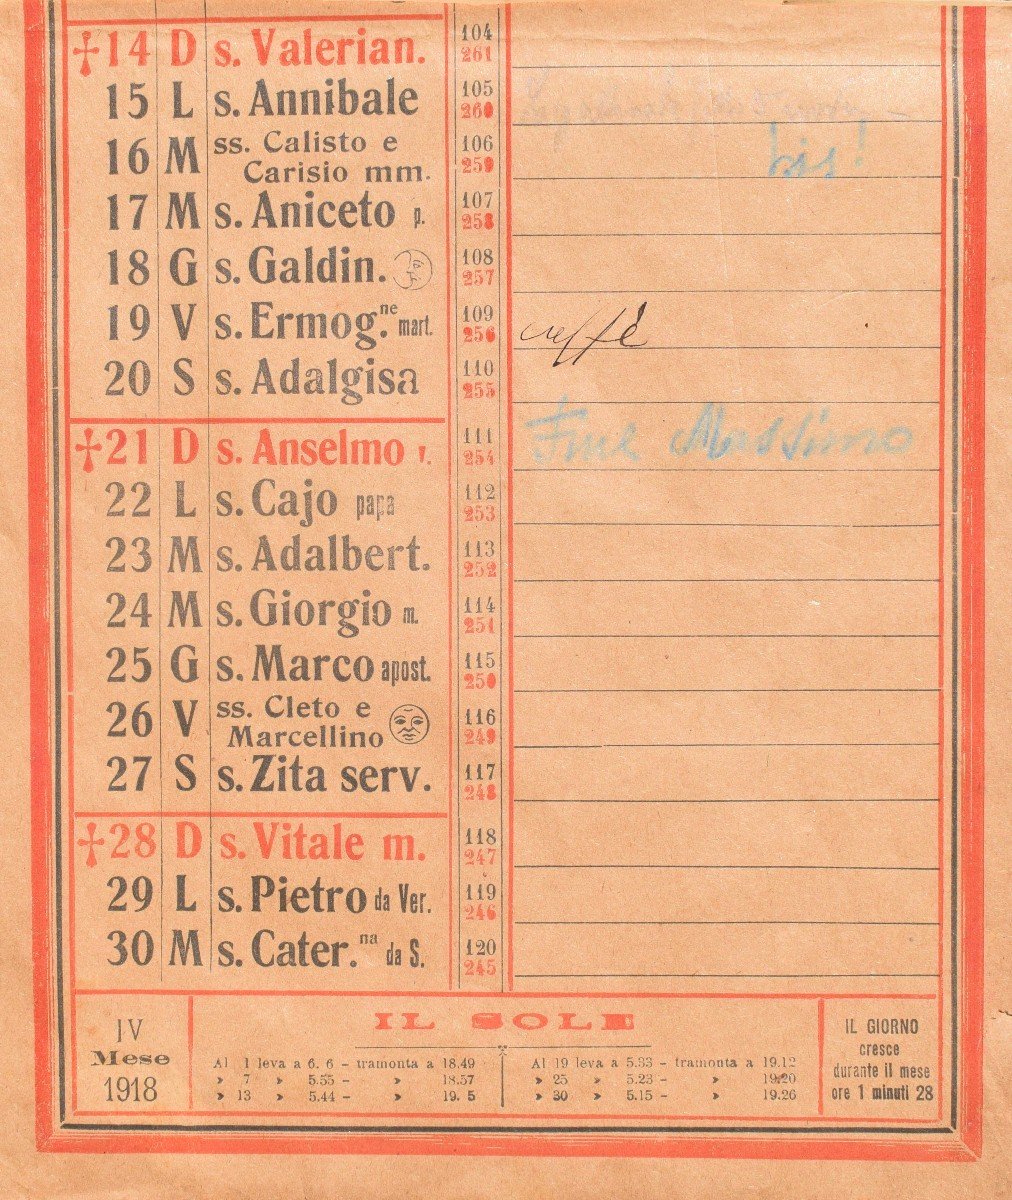 ✝14 D s. Valerian. 104 261
15 L s. Annibale 105 260
16 M ss. Calisto e Carisio mm. 106 259
bis!
17 M s. Aniceto p. 107 258
18 G s. Galdin. 108 257
19 V s. Ermog.ne mart. 109 256
20 S s. Adalgisa 110 255
✝21 D s. Anselmo v. 111 254 Massimo
22 L s. Cajo papa 112 253
23 M s. Adalbert. 113 252
24 M s. Giorgio m. 114 251
25 G s. Marco apost. 115 250
26 V ss. Cleto e Marcellino 116 249
27 S s. Zita serv. 117 248
✝28 D s. Vitale m. 118 247
29 L s. Pietro da Ver. 119 246
30 M s. Cater.na da S. 120 245
IV
Mese
1918
IL SOLE
Al 1 leva a 6. 6 - tramonta a 18.49
» 7 » 5.55 - » 18.57
» 13 » 5.44 - » 19. 5
Al 19 leva a 5.33 - tramonta a 19.12
» 25 » 5.23 - » 19.20
» 30 » 5.15 - » 19.26
IL GIORNO
cresce
durante il mese
ore 1 minuti 28